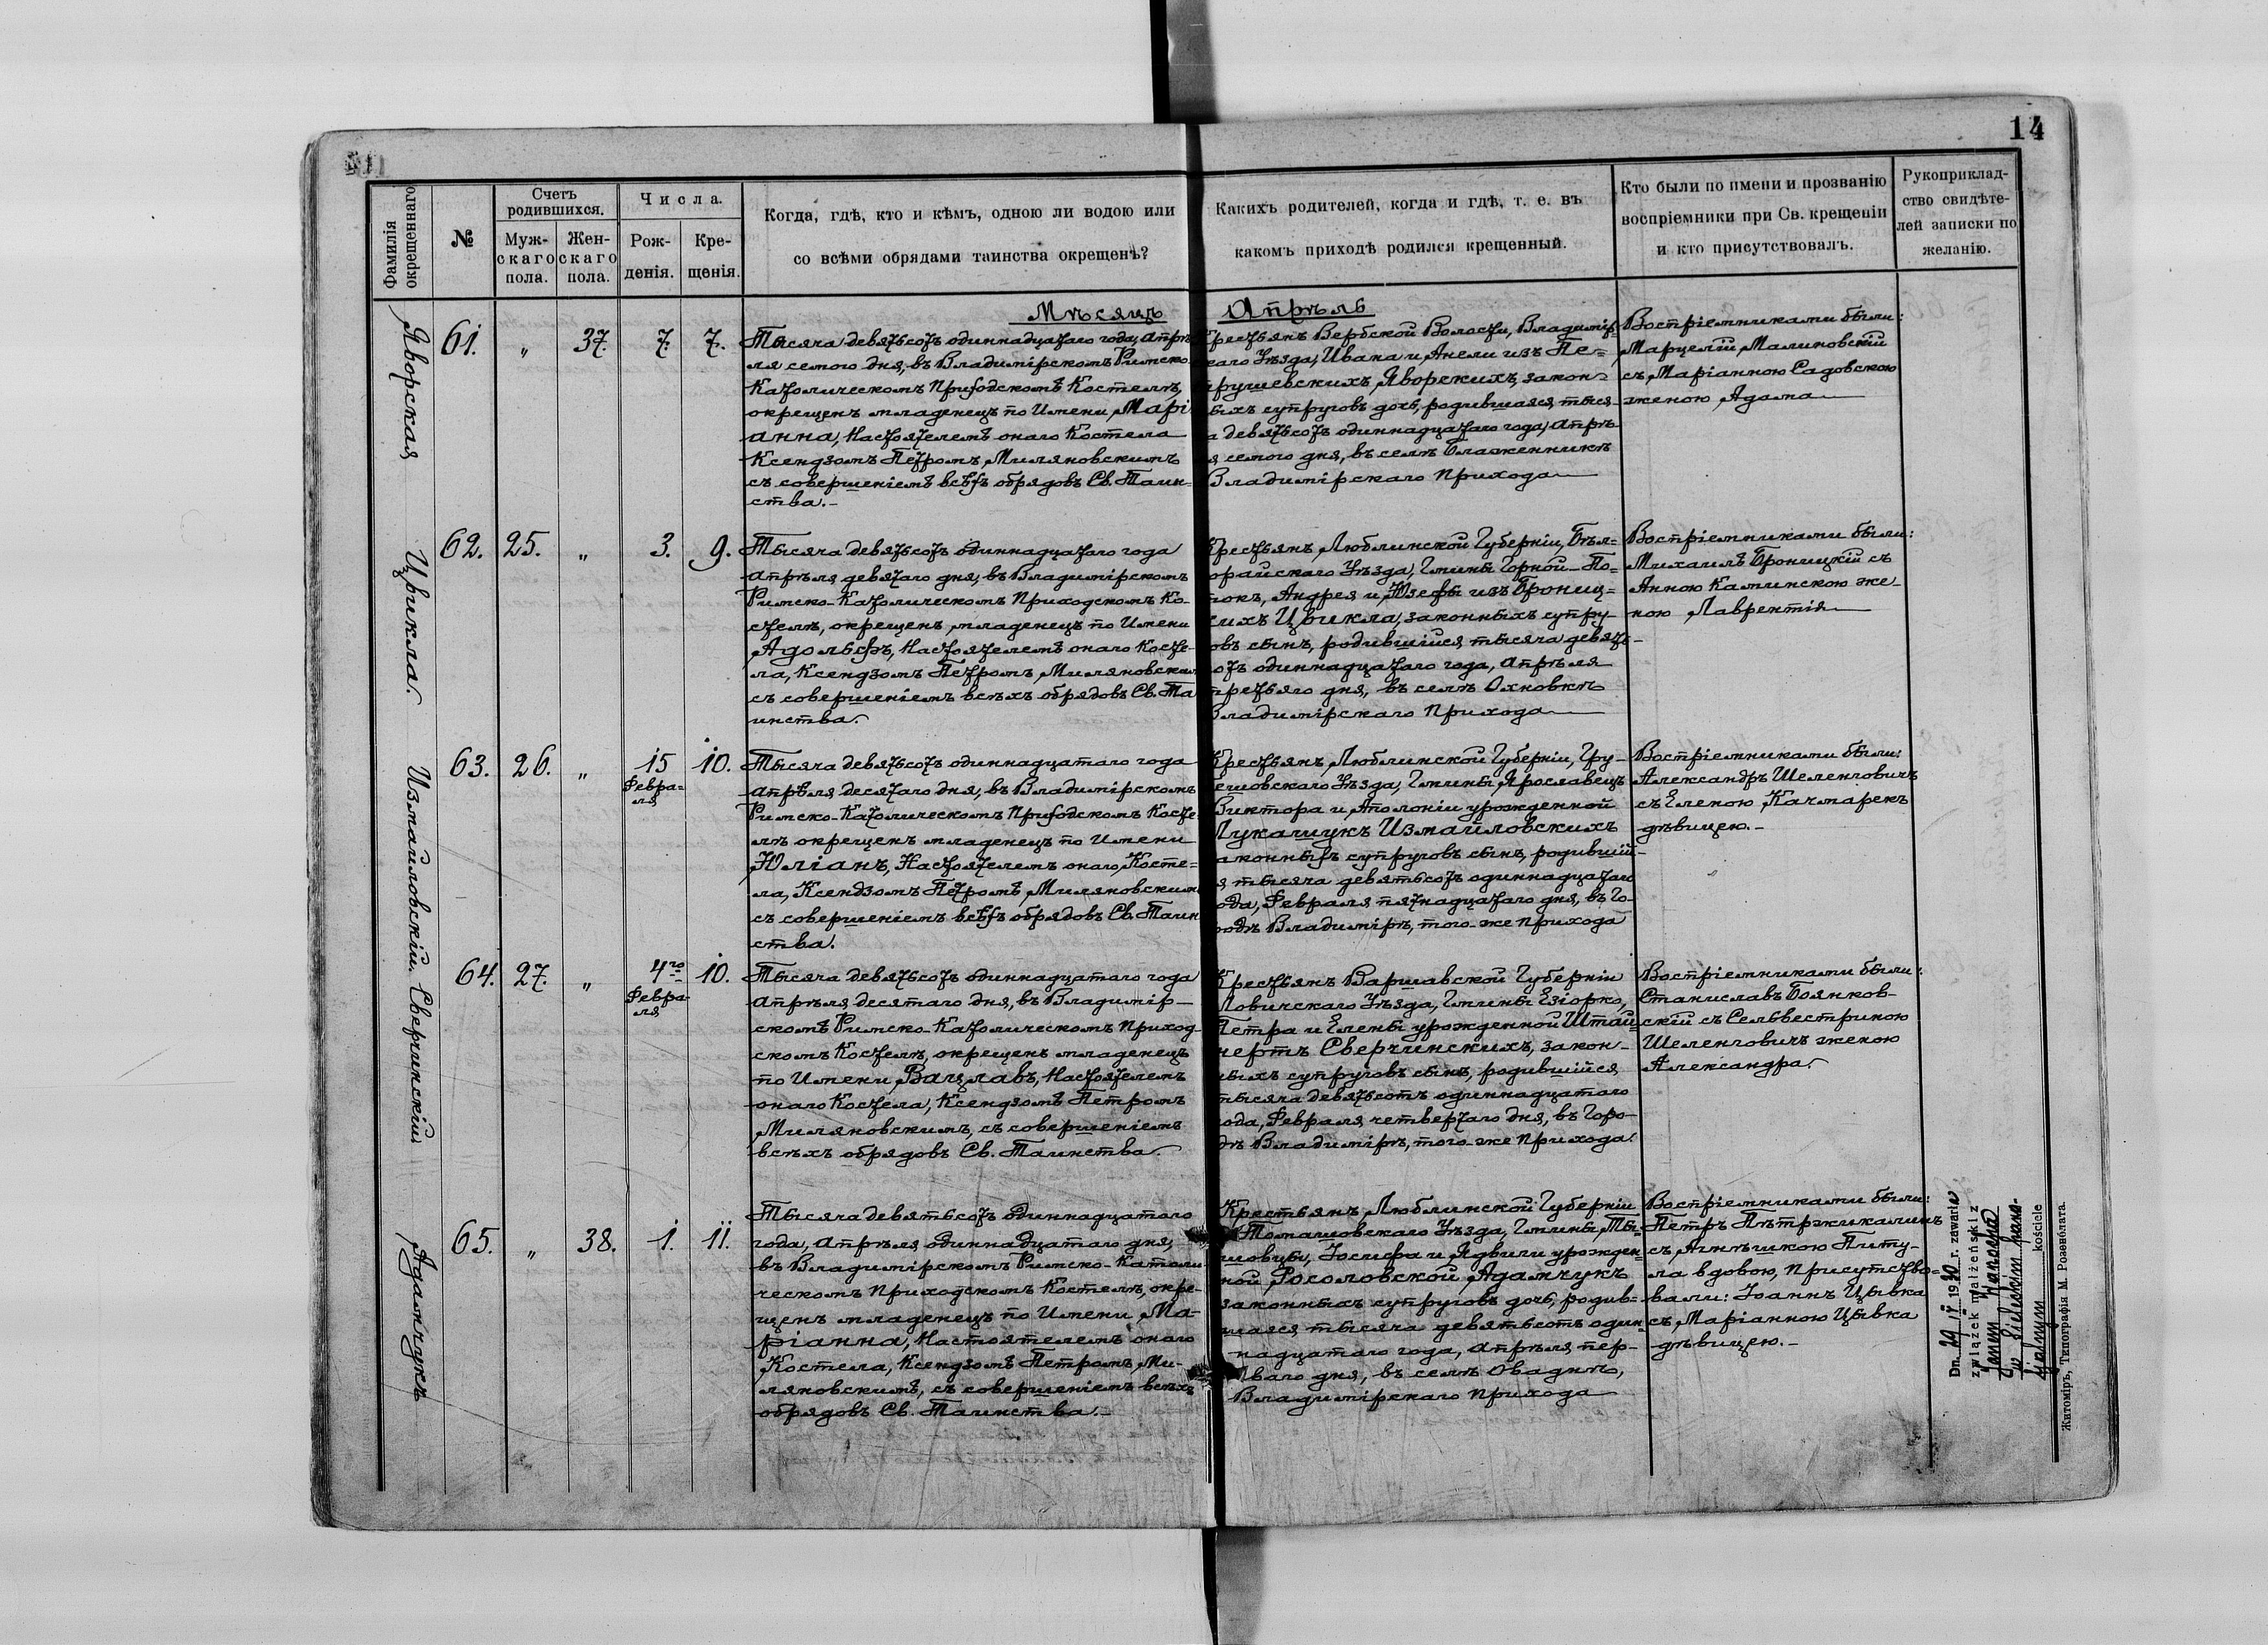 14
Фамилія
окрещеннаго
№
Счетъ
родившихся.
Муж-
скаго
пола.
Жен-
скаго
пола.
Числа.
Рож-
денія.
Кре-
щенія.
Когда, гдѣ, кто и кѣмъ, одною ли водою или
со всѣми обрядами таинства окрещенъ?
Какихъ родителей, когда и гдѣ, т. е. въ
какомъ приходѣ родился крещенный.
Кто были по имени и прозванію
воспріемники при Св. крещеніи
и кто присутствовалъ.
Рукоприклад-
ство свидѣте-
лей записки по
желанію.
Мѣсяцъ Апрѣль
Яворская
61. „ 37. 7. 7.
Тысяча девятьсотъ одиннадцатаго года, Апрѣ
ля семого дня, въ Владимірскомъ Римско
Католическомъ Приходскомъ Костелѣ,
окрещенъ младенецъ по Имени Марі
анна, Настоятелемъ онаго Костела
Ксендзомъ Петромъ Миляновскимъ
съ совершеніемъ всѣхъ обрядовъ Св. Таин-
ства.-
Крестьянъ Вербской Волости, Владимір-
скаго Уѣзда, Ивана и Анели изъ Пе-
трушевскихъ Яворскихъ, закон-
ныхъ супруговъ дочь, родившаяся тыся-
а девятьсотъ одиннадцатаго года, Апрѣ
я семого дня, въ селѣ Блаженникѣ
Владимірскаго Прихода
Воспріемниками были:
Марцелій Малиновскій
съ Маріанною Садовскою
женою Адама
Цвикла.
62. 25. „ 3. 9.
Тысяча девятьсотъ одиннадцатаго года
Апрѣля девятаго дня, въ Владимірскомъ
Римско-Католическомъ Приходскомъ Ко-
стелѣ, окрещенъ младенецъ по Имени
Адольфъ, Настоятелемъ онаго Косте-
ла, Ксендзомъ Петромъ Миляновским
съ совершеніемъ всѣхъ обрядовъ Св. Та
инства.
Крестьянъ Люблинской Губерніи, Бѣл-
горайскаго Уѣзда, Гмины Горной-По-
токъ, Андрея и Юзефы изъ Брониц-
кихъ Цвикла, законныхъ супру-
овъ сынъ, родившійся тысяча девять-
отъ одиннадцатаго года, Апрѣля
третьяго дня, въ селѣ Охновкѣ
Владимірскаго Прихода
Воспріемниками были:
Михаилъ Броницкій съ
Анною Каминскою же
ною Лаврентія
Измайловскій.
63. 26. „ 15 Февра-
ля 10.
Тысяча девятьсотъ одиннадцатаго года
Апрѣля десятаго дня, въ Владимірскомъ
Римско-Католическомъ Приходскомъ Косте
лѣ окрещенъ младенецъ по Имени
Юліанъ, Настоятелемъ онаго Косте-
ла, Ксендзомъ Петромъ Миляновским
съ совершеніемъ всѣхъ обрядовъ Св. Таин
ства.
Крестьянъ Люблинской Губерніи, Гру-
бешовскаго Уѣзда, Гмины Ярославецъ
Виктора и Аполоніи урожденной
Лукашукъ Измайловскихъ
аконныхъ супруговъ сынъ, родившій-
я тысяча девятьсотъ одиннадцатаго
ода, Февраля пятнадцатаго дня, въ Го-
родѣ Владимірѣ, того-же прихода
Воспріемниками были:
Александръ Шеленговичъ
съ Еленою Качмарекъ
дѣвицею.-
Сверчинскій
64. 27. „ 4го Февра-
ля 10.
Тысяча девятьсотъ одиннадцатаго года
Апрѣля десятаго дня, въ Владимір-
скомъ Римско-Католическомъ Приход-
скомъ Костелѣ, окрещенъ младенецъ
по Имени Вацлавъ, Настоятелемъ
онаго Костела, Ксендзомъ Петромъ
Миляновскимъ, съ совершеніемъ
всѣхъ обрядовъ Св. Таинства.
Крестьянъ Варшавской Губерніи
Ловичскаго Уѣзда, Гмины Езіорко,
Петра и Елены урожденной Штай-
нертъ Сверчинскихъ, закон-
ныхъ супруговъ сынъ, родившійся
тысяча девятьсотъ одиннадцатаго
ода, Февраля четвертаго дня, въ Горо-
дѣ Владимірѣ, того-же прихода.
Воспріемниками были:
Станиславъ Боянков-
скій съ Сельвестриною
Шеленговичъ женою
Александра.
Адамчукъ
65. „ 38. 1. 11.
Тысяча девятьсотъ одиннадцатаго
года, Апрѣля одиннадцатаго дня,
въ Владимірскомъ Римско-Католи
ческомъ Приходскомъ Костелѣ, окре-
щенъ младенецъ по Имени Ма-
ріанна, Настоятелемъ онаго
Костела, Ксендзомъ Петромъ Ми-
ляновскимъ, съ совершеніемъ всѣхъ
обрядовъ Св. Таинства.-
Крестьянъ Люблинской Губерніи
Томашовскаго Уѣзда, Гмины Ты-
шовцы, Іосифа и Ядвиги урожден-
ной Росоловской Адамчукъ
законныхъ супруговъ дочь, родив-
шаяся тысяча девятьсотъ один-
надцатаго года, Апрѣля пер-
ваго дня, въ селѣ Оваднѣ,
Владимірскаго Прихода
Воспріемниками были:
Петръ Пѣтржикалинъ
съ Агнѣшкою Питу-
ла вдовою, Присутство-
вали: Іоаннъ Цывка
съ Маріанною Цывка
дѣвицею.-
Dn. 29 IV 1930 r. zawarła
związek małżeński z
Janem
w
kościele
Житоміръ, Типографія М. Розенблата.